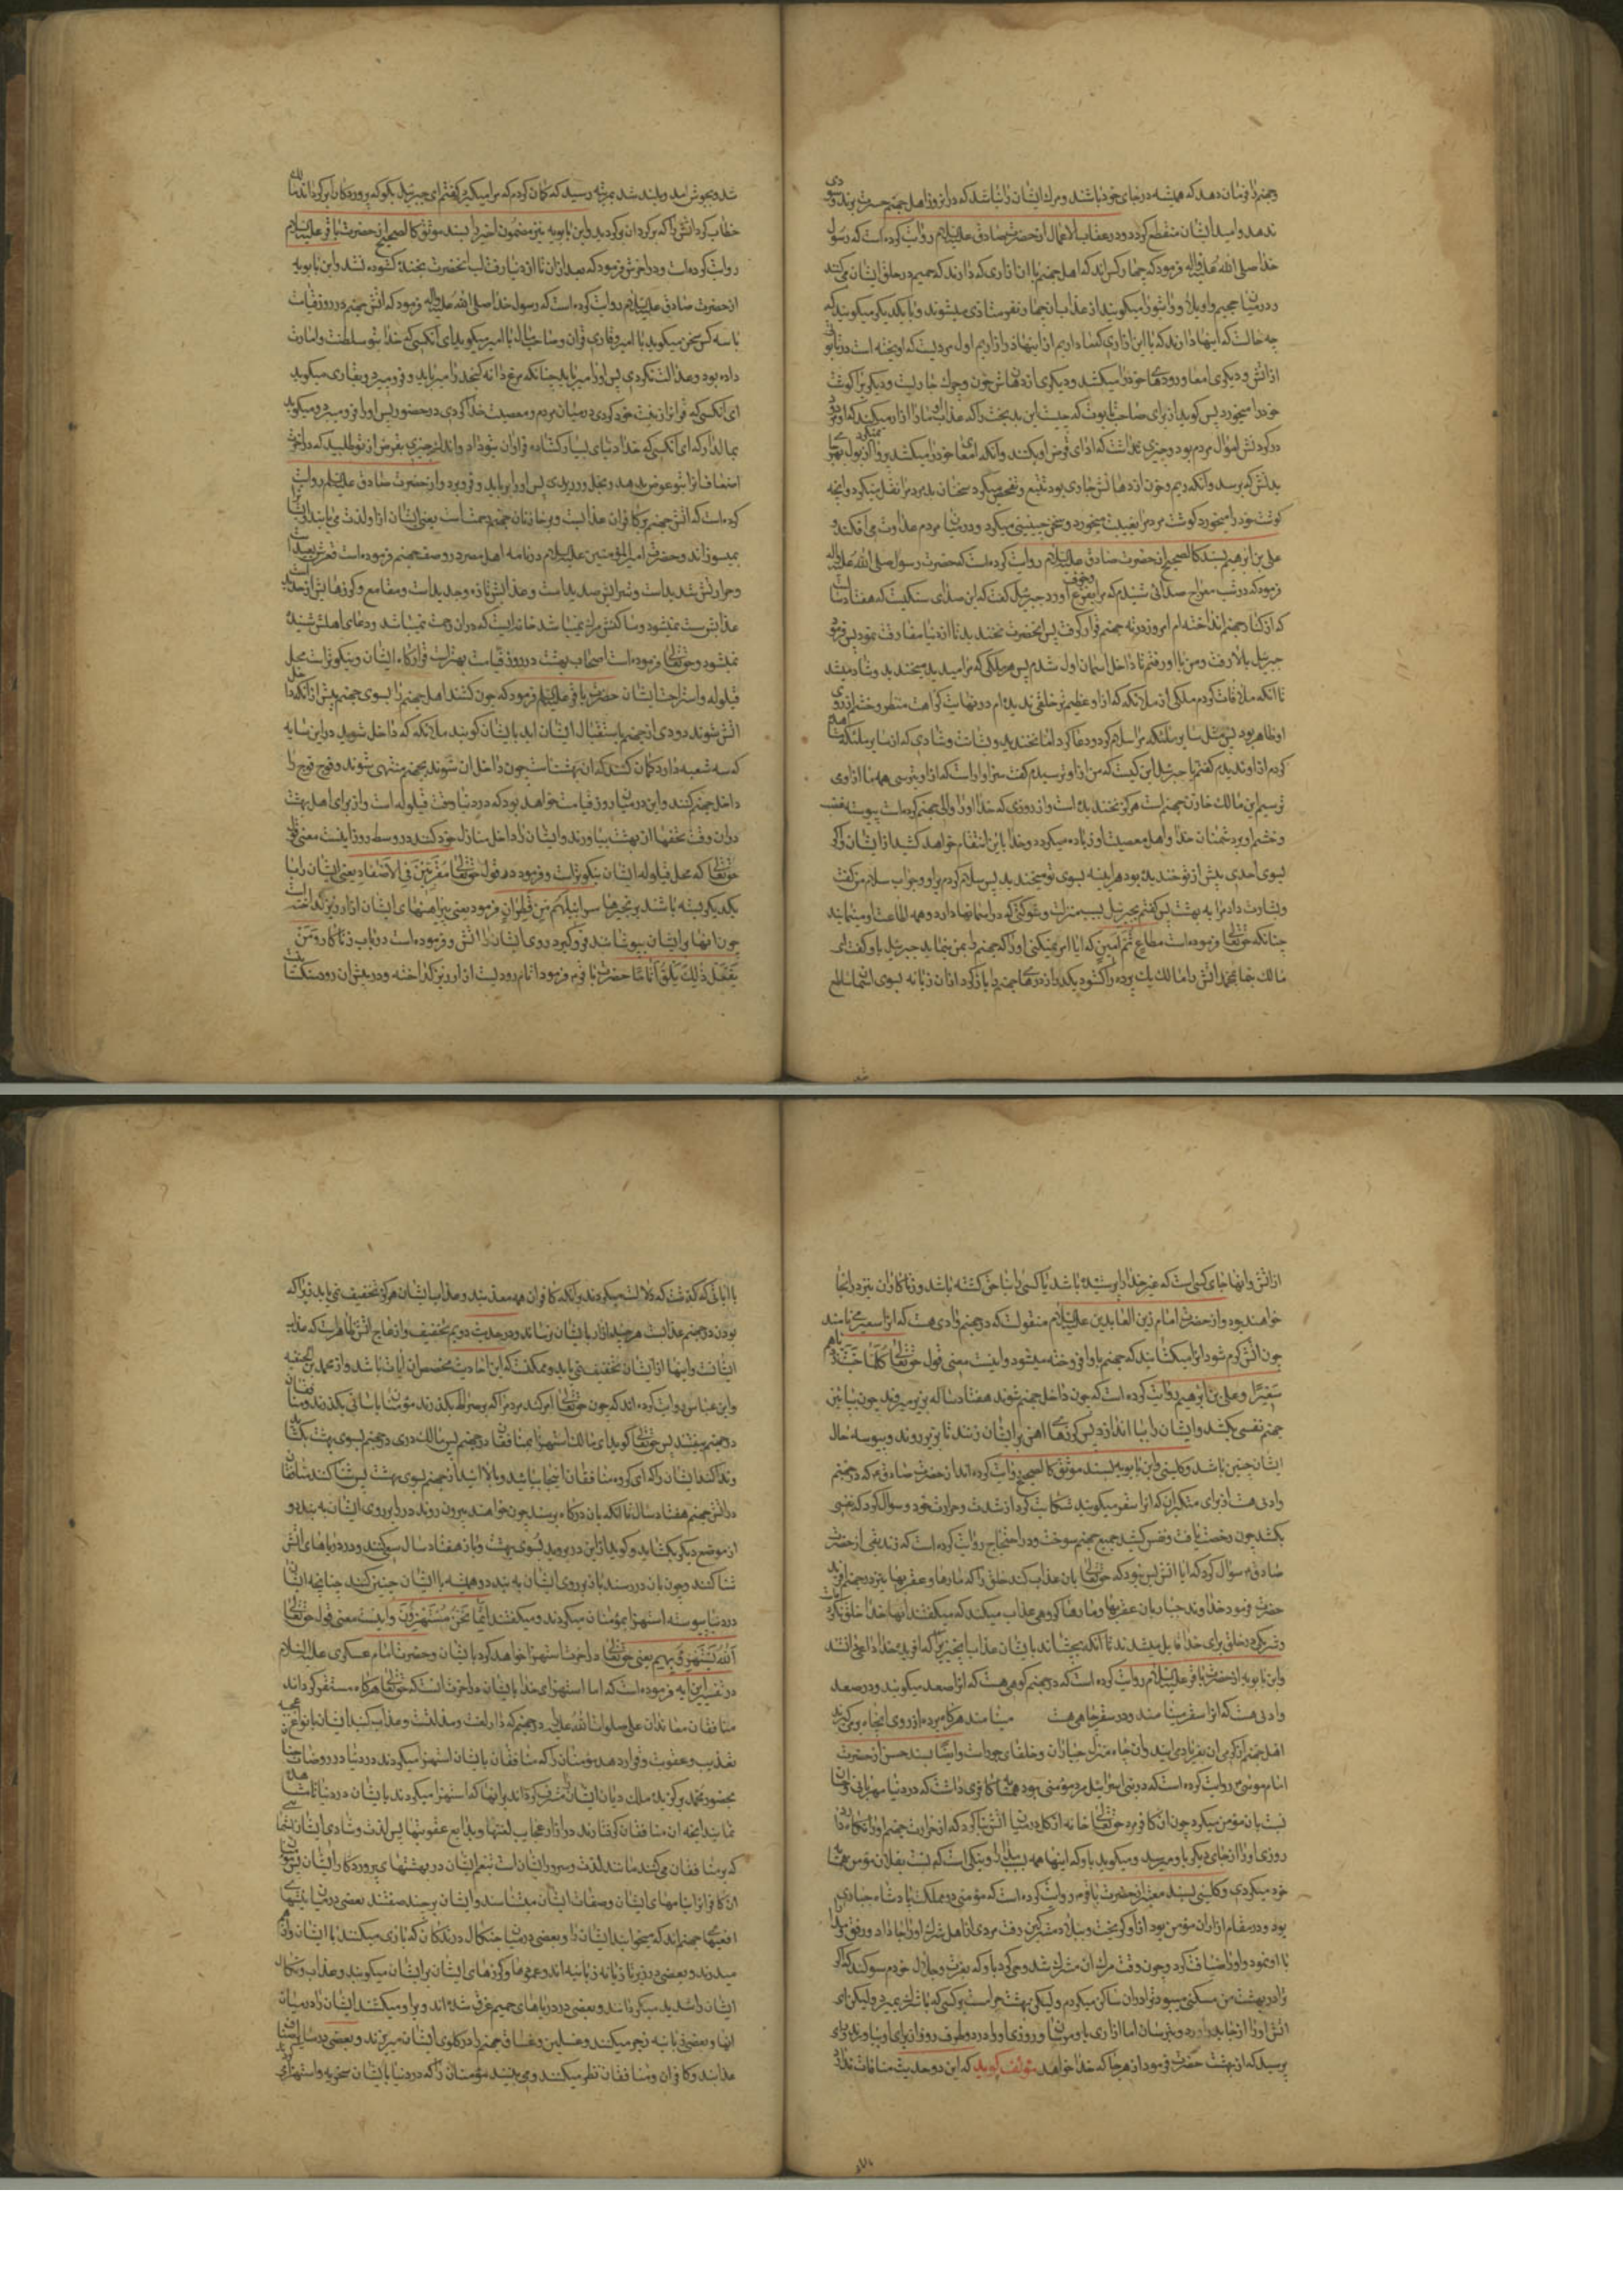 و جهنم را فرمان دهد که همیشه در جای خود باشند و مرگ ایشان را نباشد که در این روز اهل جهنم حسرت برند و شوند
ند هد و امید ایشان منقطع گردد و در عقاب الاعمال از حضرت صادق علیه السلام روایت کرده است که رسول
خدا صلی الله علیه واله فرمود که چهار کس اند که اهل جهنم با آن آزاری که دارند که حمیم در حلق ایشان می کنند
و در میان جحیم واویلاه و واثبوراه میگویند از عذاب آنها و نفر متاذی میشوند و با یکدیگر میگویند که
چه حالتست که اینها دارند که با این آزاری که ما داریم از اینها آزار داریم اول مردیست که آویخته است در تابوتی
از آتش و دیگری امعا و رودهای خود را میکشد و دیگری از دهانش خون و چرک جاریست و دیگری گوشت
خود را میخورد پس گوید از برای صاحب تابوت که چیست این بدبخت را که عذاب او ما را آزار میکند که او مرده
در گردنش اموال مردم بود و چیزی نگذاشت که ادای قرض او بکنند و آنکه امعای خود را میکشد پروا نمیکرد که بول بهر جای
بدنش که برسد و آنکه ریم و خون از دهانش جاری بود تتبع و تفحص میکرد سخنان بد مردم را نقل میکرد و آنچه
گوشت خود را میخورد گوشت مردم را بغیبت میخورد و سخن چینی میکرد و در میان مردم عداوت می افکند و
علی بن ابرهیم بسند کالصحیح از حضرت صادق علیه السلام روایت کرده است که حضرت رسول صلی الله علیه واله
فرمود که در شب معراج صدائی شنیدم که مرا بفزع و خوف آورد جبرئیل گفت که این صدای سنگیست که هفتاد سال است
که از کنار جهنم انداخته ام امروز در ته جهنم قرار گرفت پس آنحضرت نخندید تا از دنیا مفارقت نمود پس فرمود
جبرئیل بالا رفت و من با او رفتم تا داخل آسمان اول شدم پس هر ملکی که مرا میدید میخندید و شاد میشد
تا آنکه ملاقات کردم ملکی از ملائکه که از او عظیم تر خلقی ندیده ام در نهایت کراهت منظر و خشم از روی
او ظاهر بود پس مثل سایر ملئکه مرا سلام کرد و دعا کرد اما نخندید و بشاشت و شادی که از سایر ملئکه مشاهده
کردم از او ندیدم گفتم یا جبرئیل این کیست که من از او ترسیدم گفت سزاوار است که از او بترسی همه ما از او می
ترسیم این مالک خازن جهنم است هرگز نخندیده است و از روزی که خدا او را والی جهنم کرده است پیوسته غضب
و خشم او بر دشمنان خدا و اهل معصیت او زیاده میگردد و خدا باین انتقام خواهد کشید از ایشان و اگر
بسوی احدی پیش از تو خندیده بود هر آینه بسوی تو میخندید پس سلام کردم بر او و جواب سلام من گفت
و بشارت داد مرا به بهشت پس گفتم بجبرئیل بسبب منزلت و شوکتی که در آسمانها دارد و همه اطاعت او مینمایند
چنانکه حق تعالی فرموده است مطاع ثم امین که آیا امر نمیکنی او را که جهنم را بمن بنماید جبرئیل باو گفت ای
مالک بنما بمحمد آتش را مالک یک پرده را گشود یک در از درهای جهنم را باز کرد از آن زبانه بسوی آسمان ساطع
شد و بجوش آمد و بلند شد بمرتبه رسید که گمان کردم که مرا میگیرد گفتم ای جبرئیل بگو که پرده را برگرداند مالک
خطاب کرد آتش را که برگرد آن برگردید و ابن بابویه نیز مضمون اخیر را بسند موثق کالصحیح از حضرت باقر علیه السلام
روایت کرده است و در آخرش فرمود که بعد از آن تا از دنیا رفت لب آنحضرت بخنده گشوده نشد و ابن بابویه
از حضرت صادق علیه السلام روایت کرده است که رسول خدا صلی الله علیه واله فرمود که آتش جهنم در روز قیامت
با سه کس سخن میگوید با امیر و قاری قرآن و صاحب مال با امیر میگوید ای آنکسی که خدا بتو سلطنت و امارت
داده بود و عدالت نکردی پس او را میرباید چنانکه مرغ دانه کنجد را میرباید و فرو میبرد و بقاری میگوید
ای آنکسی که قرآن را زینت خود کردی در میان مردم و معصیت خدا کردی در حضور پس او را فرو میبرد و میگوید
بمالدار که ای آنکسی که خدا دنیای بسیار گشاده فراوان بتو داد و اندک چیزی بقرض از تو طلبید که در آخرت
اضعاف آنرا بتو عوض بدهد و بخل ورزیدی پس او را برباید و فرو برد و از حضرت صادق علیه السلام روایت
کرده است که آتش جهنم بر کافران عذابست و بر خازنان جهنم رحمتست یعنی ایشان از او لذت می یابند و ایشان را
نمیسوزاند و حضرت امیر المؤمنین علیه السلام در نامه اهل مصر در وصف جهنم فرموده است قعرش بعید است
و حرارتش شدید است و شرابش صدید است و عذابش تازه و جدید است و مقامع و گرزهایش از حدید است
عذابش سست نمیشود و ساکنش مرگ نمیباشد خانه ایست که در آن رحمت نمیباشد و دعای اهلش شنیده
نمیشود و حق تعالی فرموده است اصحاب بهشت در روز قیامت بهتر است قرارگاه ایشان و نیکوتر است محل
قیلوله و استراحت ایشان حضرت باقر علیه السلام فرمود که چون کشند اهل جهنم را بسوی جهنم پیش از آنکه داخل
آتش شوند دودی از جهنم باستقبال ایشان آید بایشان گویند ملائکه که داخل شوید در این سایه
که سه شعبه دارد گمان کنند که آن بهشتست چون داخل آن شوند بجهنم منتهی شوند و فوج فوج را
داخل جهنم کنند و این در میان روز قیامت خواهد بود که در دنیا وقت قیلوله است و از برای اهل بهشت
در آن وقت تحفها از بهشت بیاورند و ایشان را داخل منازل خود کنند در وسط روز اینست معنی قول
حق تعالی که محل قیلوله ایشان نیکوتر است و فرمود در قول حق تعالی مقرنین فی الاصفاد یعنی ایشان را با
یکدیگر بسته باشند بزنجیرها سرابیلهم من قطران فرمود یعنی پیراهنهای ایشان از ارزیز گداخته است
چون آنها را ایشان بپوشانند فرو گیرد روی ایشان را آتش و فرموده است در باب زناکار و من
یفعل ذلک یلق اثاما حضرت باقر فرمود اثام رودیست از ارزیز گداخته و در پیش آن رود سنگستان است
از آتش و آنها جای کسی است که غیر خدا را پرستیده باشد یا کسی را بناحق کشته باشد و زناکاران نیز در آنجا
خواهند بود و از حضرت امام زین العابدین علیه السلام منقولست که در جهنم وادی هست که آنرا سعیر می نامند
چون آتش گرم شود آنرا میگشایند که جهنم باو افروخته میشود و اینست معنی قول حق تعالی کلما خبت زدناهم
سعیرا و علی بن ابرهیم روایت کرده است که چون داخل جهنم شوند هفتاد ساله بزیر میروند چون بپائین
جهنم نفسی بکشد و ایشان را ببالا اندازد پس گرزهای آهن بر ایشان زنند تا بزیر روند و پیوسته حال
ایشان چنین باشد و کلینی و ابن بابویه بسند موثق کالصحیح روایت کرده اند از حضرت صادق که در جهنم
وادی هست از برای متکبران که آنرا سقر میگویند شکایت کرد از شدت حرارت خود و سؤال کرد که نفسی
بکشد چون رخصت یافت و نفس کشید جمیع جهنم سوخت و در احتجاج روایت کرده است که زندیقی از حضرت
صادق سؤال کرد که آیا آتش بس نبود که حق تعالی بآن عذاب کند خلق را که مارها و عقربها نیز در جهنم آفرید
حضرت فرمود خداوند جبار بآن عقربها و مارها گروهی عذاب میکند که میگفتند آنها خدا خلق نکرده
و شریکی در خلق برای خدا قایل میشدند تا آنکه بچشاند بایشان عذاب آنچیز را که آفریده خدا را نمیدانستند
و ابن بابویه از حضرت باقر علیه السلام روایت کرده است که در جهنم کوهی هست که آنرا صعد میگویند و در صعد
وادی هست که آنرا سقر مینامند و در سقر چاهی هست مینامند هرگاه پرده از روی آنچاه بر می گیرند
اهل جهنم از گرمی آن بفریاد می آیند و آن چاه منزل جباران و خلفای جور است و ایضا بسند حسن از حضرت
امام موسی روایت کرده است که در بنی اسرائیل مرد مؤمنی بود همسایه کافری داشت که در دنیا مهربانی و احسان
نسبت بآن مؤمن میکرد چون آن کافر مرد حق تعالی خانه از گل در میان آتش بنا کرد که از حرارت جهنم او را نگاه دارد و
روزی او را از جای دیگر باو میرسد و میگوید باو که اینها همه بسبب مدارا و نیکی است که نسبت بفلان مؤمن همسایه
خود میکردی و کلینی بسند معتبر از حضرت باقر روایت کرده است که مؤمنی در مملکت پادشاه جباری
بود و در مقام آزار آن مؤمن بود از او گریخت و ببلاد مشرکین رفت مردی از اهل شرک او را جا داد و رفق و مدارا
با او نمود و او را ضیافت کرد و چون وقت مرگ آن مشرک شد وحی کرد باو که بعزت و جلال خودم سوگند که اگر
ترا در بهشت من مسکنی میبود ترا در آن ساکن میکردم و لیکن بهشت حرام است بر کسی که با شرک بمیرد و لیکن ای
آتش او را از جا بدر آور و بترسان اما آزاری باو مرسان و روزی او را در دو طرف روز از برای او بیاورند راوی
پرسید که از بهشت حضرت فرمود از هر جا که خدا خواهد مؤلف گوید که این دو حدیث منافات ندارد
با آیاتی که گذشت که دلالت میکردند بر آنکه کافران همه معذبند و عذاب ایشان هرگز تخفیف نمی یابد زیرا که
بودن در جهنم عذابست هر چند آزار بایشان نرساند و در حدیث دویم تخویف و ازعاج آتش ظاهر است که عذاب
ایشانست و اینها از ایشان تخفیف نمی یابد و ممکنست که این احادیث مخصص آن آیات باشد و از محمد بن الحنفیه
و ابن عباس روایت کرده اند که چون حق تعالی امر کند مردم را که بر صراط بگذرند مؤمنان بآسانی بگذرند و منافقان
در جهنم بیفتند پس حق تعالی گوید ای مالک استهزا بمنافقان در جهنم پس مالک دری در جهنم بسوی بهشت بگشاید
و ندا کند ایشان را که ای گروه منافقان اینجا بیائید و بالا آئید از جهنم بسوی بهشت پس شنا کنند منافقان
در آتش جهنم هفتاد سال تا آنکه بآن درگاه برسند چون خواهند بیرون روند در را بر روی ایشان به بندد و
از موضع دیگر بگشاید و گوید از این در بروید بسوی بهشت و باز هفتاد سال سعی کنند و در دریاهای آتش
شنا کنند و چون بآن در رسند باز بر روی ایشان به بندد و همیشه با ایشان چنین کنند چنانچه ایشان
در دنیا پیوسته استهزا بمؤمنان میکردند و میگفتند انما نحن مستهزؤن و اینست معنی قول حق تعالی
الله یستهزئ بهم یعنی حق تعالی در آخرت استهزا خواهد کرد بایشان و حضرت امام عسکری علیه السلام
در تفسیر این آیه فرموده است که اما استهزای خدا بایشان در آخرت آنست که حق تعالی هرگاه مستقر گرداند
منافقان معاندان علی صلوات الله علیه را در جهنم که دار لعنت و مذلتست و عذاب کند ایشان بانواع عجیبه
تعذیب و عقوبت و قرار دهد مؤمنان را که منافقان بایشان استهزا میکردند در دنیا در روضات جنان
بحضور محمد برگزیده ملک دیان ایشان مشرف گرداند بر آنها که استهزا میکردند بایشان در دنیا تا مشاهده
نمایند آنچه آن منافقان گرفتارند در آن از عجایب لعنتها و بدایع عقوبتها پس لذت و شادی ایشان بشماتتی
که بر منافقان می کنند مانند لذت و سرور ایشان است بتنعم ایشان در بهشتهای پروردگار ایشان پس مؤمنان
آن کافران را بنامهای ایشان و صفات ایشان میشناسند و ایشان بر چند صفتند بعضی در میان نیشهای
افعیهای جهنم اند که میخوایند ایشان را و بعضی در میان چنگال درندگان که بازی میکنند با ایشان و از هم
میدرند و بعضی در زیر تازیانه زبانیه اند و عمودها و گرزهای ایشان بر ایشان میکوبند و عذاب و نکال
ایشان را شدید میگردانند و بعضی در دریاهای حمیم غرق شده اند و براو میکشند ایشان را در میان
آنها و بعضی زبانیه زجر میکنند و غسلین و غساق جهنم را در گلوی ایشان میریزند و بعضی در سایر اصناف
عذابند و کافران و منافقان نظر میکنند و می بینند مؤمنان را که در دنیا بایشان سخریه و استهزای